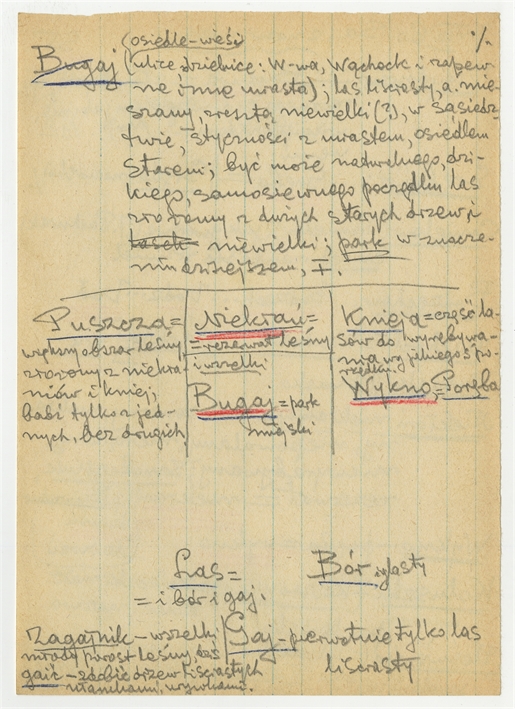 (osiedle-wieś)
Bugaj (ulice, dzielnice: W-wa, Wąchock i zapew-
ne inne miasta); las liściasty, a. mie-
szany, zresztą niewielki (?), w sąsiedz-
twie, styczności z miastem, osiedlem
starem; być może naturalnego, dzi-
kiego, samosiewnego początku las
złożony z dużych starych drzew i
lasek niewielki; park w znacze-
niu dzisiejszem,
Puszcza =
większy obszar leśny,
złożony z niekra-
niów i kniej,
bądź tylko z jed-
nych, bez drugich
Niekrań =
= rezerwat leśny
i wszelki
Bugaj = park
miejski
Knieja = część la-
sów do wyrębywa-
nia wg jakiegoś po-
rządku.
Wykno, = Poręba
Las =
= i bór i gaj.
Bór iglasty
Zagajnik - wszelki
młody porost leśny,
gaić - zdobić drzew liściastych
Gaj - pierwotnie tylko las
liściasty